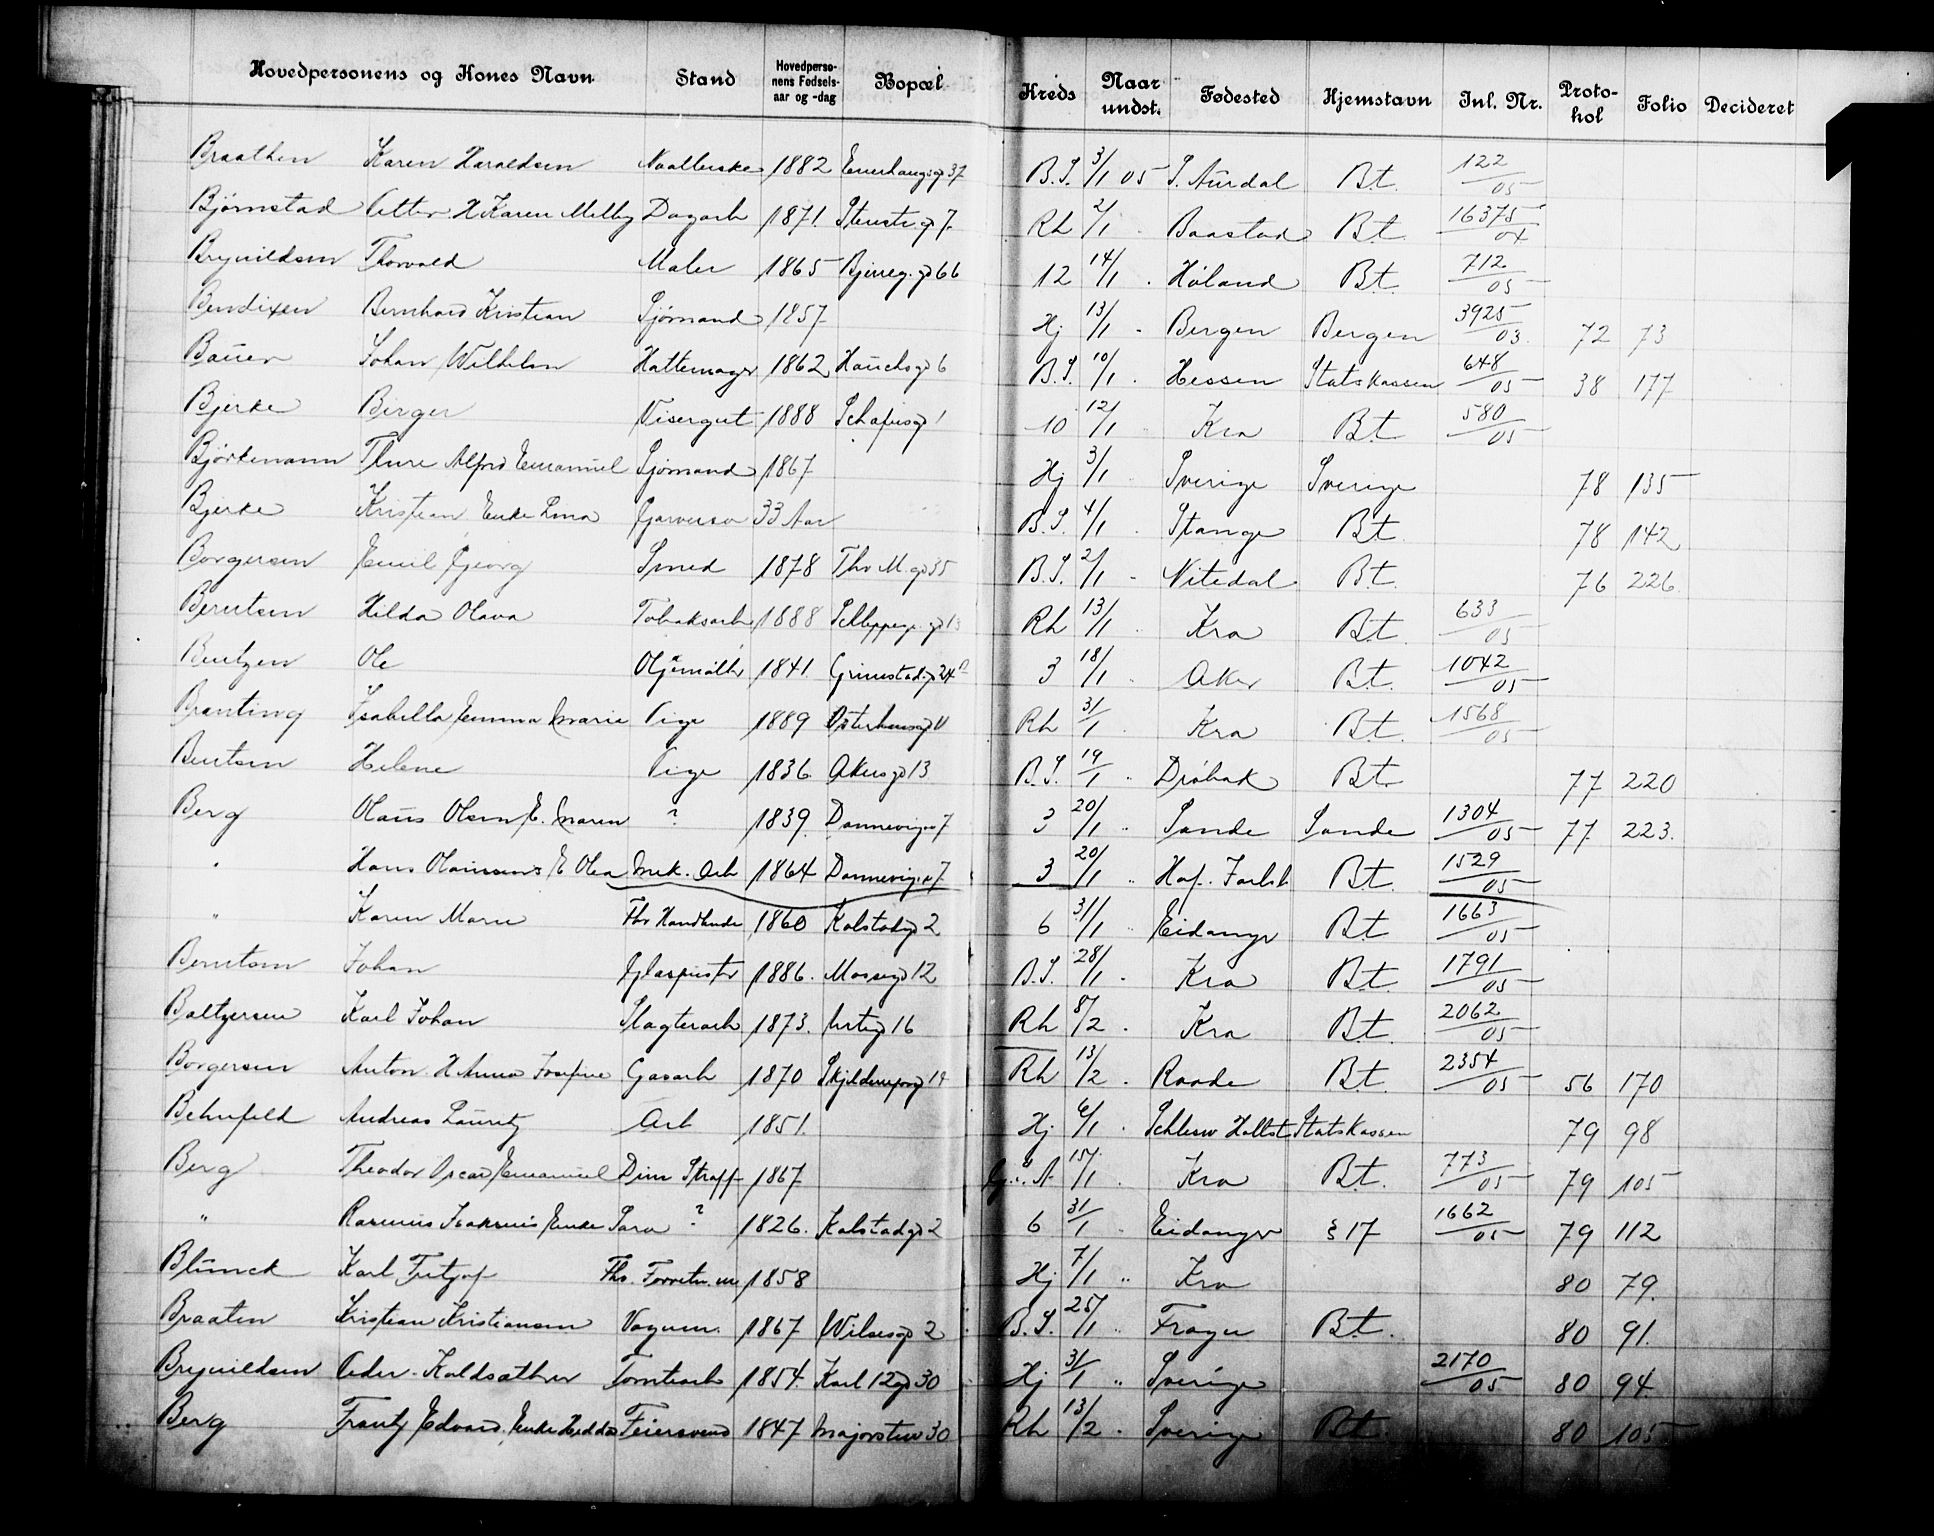 Hovedpersonens og Kones Navn Stand Hovedpersonens Fødselsaar og -dag Bopæl Kreds Naar undst. Fødested Hjemstavn Inl. Nr. Protokol Folio Decideret
Braathen Karen Haraldsen 1882 37 B.S. 3/1 05 S. Aurdal Bt. 122/05
Bjørnstad Karen Melby Dagarb 1871. Stenstr gd 7. Rh 2/1 Baastad Bt. 16375/04
Brynildsen Thorvald Maler 1865 66 12 14/1 Høland Bt. 712/05
Bendixen Bernhard Kristian Sjømand 1857 Hj 13/1 Bergen Bergen 3925/03. 72 73
Bauer Johan Wilhelm Hattemager 1862 Hauchsgd 6 B.S. 10/1 Hessen Statskassen 648/05 38 177
Bjerke Birger Visergut 1888 Schafusgd 1 10 12/1 Kra Bt 580/05
Björkemann Thure Alfrd Emanuel Sjømand 1867 Hj 3/1 Sverige Sverige 78 135
Bjerke Kristian Enke Lina 33 Aar B.S. 4/1 Stange Bt. 78 142
Borgersen Emil Georg Smed 1878 Thv M. gd 35 B.S. 2/1 Nitedal Bt. 76 226.
Berntsen Hilda Olava Tobaksarb 1888 Rh 13/1 Kra Bt. 633/05
Bentzen Ole 1841. Grimstadgd 24 3 18/1 Aker Bt. 1042/05
Branting Isabella Emma Marie Pige 1889 Østerhausgd 11 Rh 31/1 Kra Bt. 1568/05
Bentsen Helene Pige 1836 Akersgd 13 B.S. 19/1 Drøbak Bt. 77 220
Berg Olaus Olsen E. Maren ? 1839. Dannevigsv 7 3 20/1 Sande Sande 1304/05 77 223.
" Hans E Olea Mek. Arb 1864 Dannevigsv 7 3 20/1 Hof. Jarlsb Bt. 1529/05
" Karen Marie Fhv Handlende 1860 Kalstadgd 2 6 31/1 Eidanger Bt 1663/05
Berntsen Johan Glaspuster 1886. Mossegd 12 B.S. 28/1 Kra Bt. 1791/05
Baltzersen Karl Johan Slagterarb 1873. Urtegd 16 Rh 8/2 Kra Bt. 2062/05
Borgersen Anton H Anna Josefine Gasarb 1870 14 Rh 13/2 Raade Bt. 2354/05 56 170
Behnfeld Andreas Lauritz Arb 1851. Hj 6/1 Schlesw Holst Statskassen 79 98
Berg Theodor Oscar Emanuel Dim Straff 1867 15/1 Kra Bt. 773/05 79 105
" Rasmus Isaksens Enke Sara ? 1826. Kalstadgd 2 6 31/1 Eidanger § 17 1662/05 79 112
Blunck Karl Fritjof Fhv. 1858 Hj 7/1 " Kra 80 79.
Braaten Kristian Kristiansen Vognm. 1867 Wilsesgd 2 B.S. 25/1 " Bt. 80 91.
Brynildsen Peder Koldsæther Tomtearb 1854. Karl 12 gd 30 Hj 31/1 " Sverige 2170/05 80 94
Berg Frantz Edvard, Enke Hedda Feiersvend 1847 Majorstuv 30 Rh 13/2 Sverige Bt. 80 105